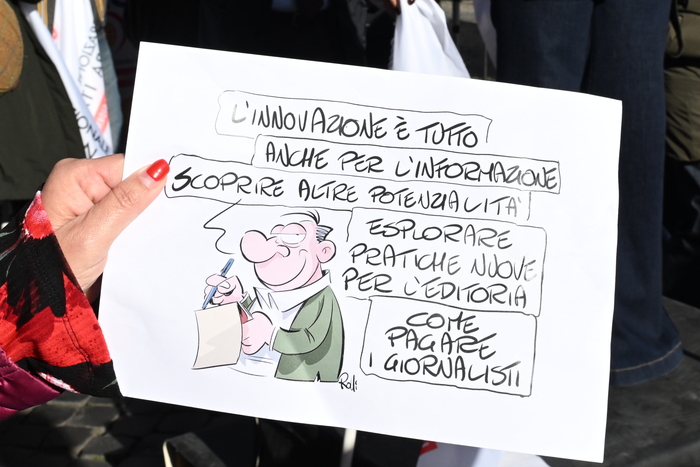 L'INNOVAZIONE È TUTTO
ANCHE PER L'INFORMAZIONE
SCOPRIRE ALTRE POTENZIALITA'
ESPLORARE
PRATICHE NUOVE
PER L'EDITORIA
COME
PAGARE
I GIORNALISTI